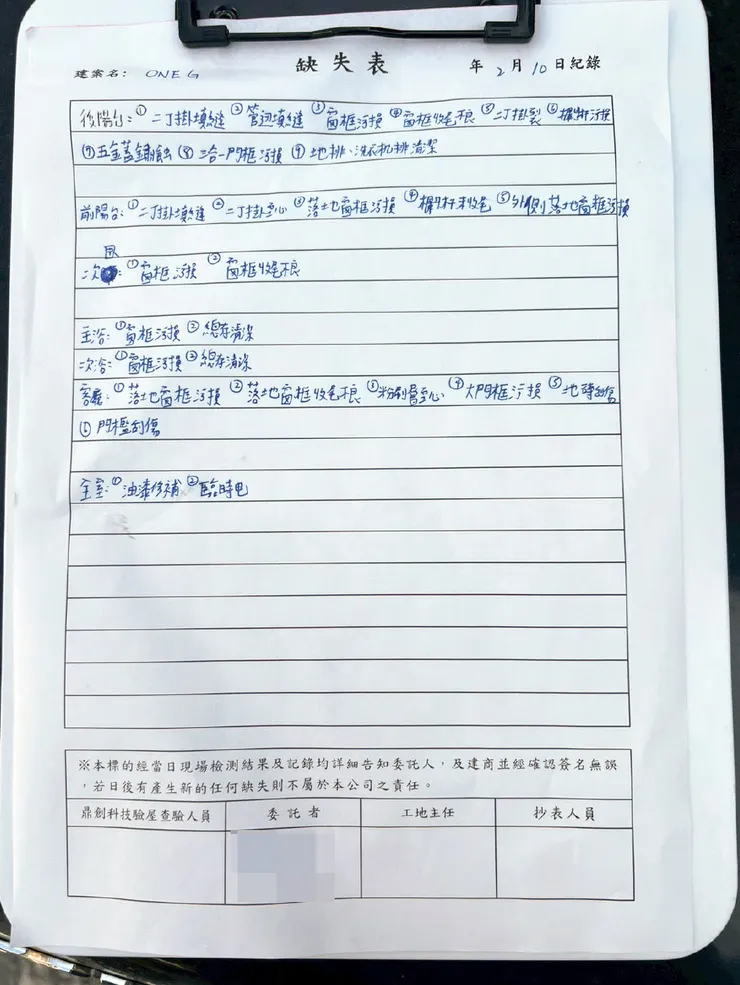 缺失表
建案名: ONE G 年 2 月 10 日紀錄
後陽台:① 二丁掛填縫 ② 管道填縫 ③ 窗框污損 ④ 窗框收尾不良 ⑤ 二丁掛裂 ⑥ 欄杆污損
⑦ 五金蓋鏽蝕 ⑧ 三合一門框污損 ⑨ 地排、洗衣机排清潔
前陽台:① 二丁掛填縫 ② 二丁掛空心 ③ 落地窗框污損 ④ 欄杆未收尾 ⑤ 外側落地窗框污損
次臥:① 窗框污損 ② 窗框收尾不良
主浴:① 窗框污損 ② 總存清潔
次浴:① 窗框污損 ② 總存清潔
客廳:① 落地窗框污損 ② 落地窗框收尾不良 ③ 粉刷層空心 ④ 大門框污損 ⑤ 地磚刮傷
⑥ 門檻刮傷
全室:① 油漆修補 ② 臨時电
※本標的經當日現場檢測結果及記錄均詳細告知委託人,及建商並經確認簽名無誤
,若日後有產生新的任何缺失則不屬於本公司之責任。
鼎創科技驗屋查驗人員 委託者 工地主任 抄表人員